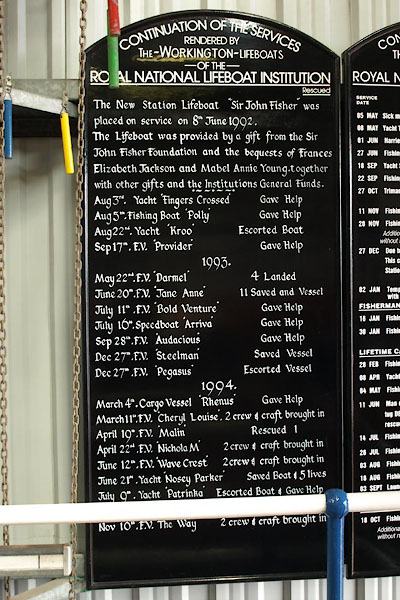 CONTINUATION OF THE SERVICES
RENDERED BY
THE-WORKINGTON-LIFEBOATS
OF THE
ROYAL NATIONAL LIFEBOAT INSTITUTION
Rescued
The New Station Lifeboat "Sir John Fisher" was
placed on service on 8th June 1992.
The Lifeboat was provided by a gift from the Sir
John Fisher Foundation and the bequests of Frances
Elizabeth Jackson and Mabel Annie Young, together
with other gifts and the Institutions General Funds.
Aug 3rd. Yacht 'Fingers Crossed' Gave Help
Aug 5th. Fishing Boat 'Polly' Gave Help
Aug 22nd. Yacht 'Kroo' Escorted Boat
Sep 17th. F.V. 'Provider' Gave Help
1993.
May 22nd. F.V. 'Darmel' 4 Landed
June 20th. F.V. 'Jane Anne' 11 Saved and Vessel
July 11th. F.V. 'Bold Venture' Gave Help
July 16th. Speedboat 'Arriva' Gave Help
Sep 28th. F.V. 'Audacious' Gave Help
Dec 27th. F.V. 'Steelman' Saved Vessel
Dec 27th. F.V. 'Pegasus' Escorted Vessel
1994.
March 4th. Cargo Vessel 'Rhenus' Gave Help
March 11th. F.V. 'Cheryl Louise'. 2 crew & craft brought in
April 19th. F.V. 'Malin' Rescued 1
April 22nd. F.V. 'Nichola M' 2 crew & craft brought in
June 12th. F.V. 'Wave Crest' 2 crew & craft brought in
June 21st. Yacht Nosey Parker Saved Boat & 5 lives
July 9th. Yacht 'Patrinka' Escorted Boat & Gave Help
Nov 10th. F.V. The Way 2 crew & craft brought in
ROYAL N
SERVICE
DATE
05 MAY Sick m
08 MAY
01 JUN Harrie
27 JUN Fishin
18 SEP Yacht
22 SEP Fishin
27 OCT Trima
11 NOV Fishin
28 NOV Fishin
Addition
27 DEC Due t
This c
Statio
02 JAN Temp
with
FISHERMAN
18 JAN Fishin
30 JAN Fishin
LIFETIME C
28 FEB Fishi
08 APR Yacht
04 MAY Fishin
11 JUN Man
rescu
14 JUL Fishi
28 JUL Fishin
03 AUG Fishi
16 AUG Fishin
03 SEPT
18 OCT Fishi